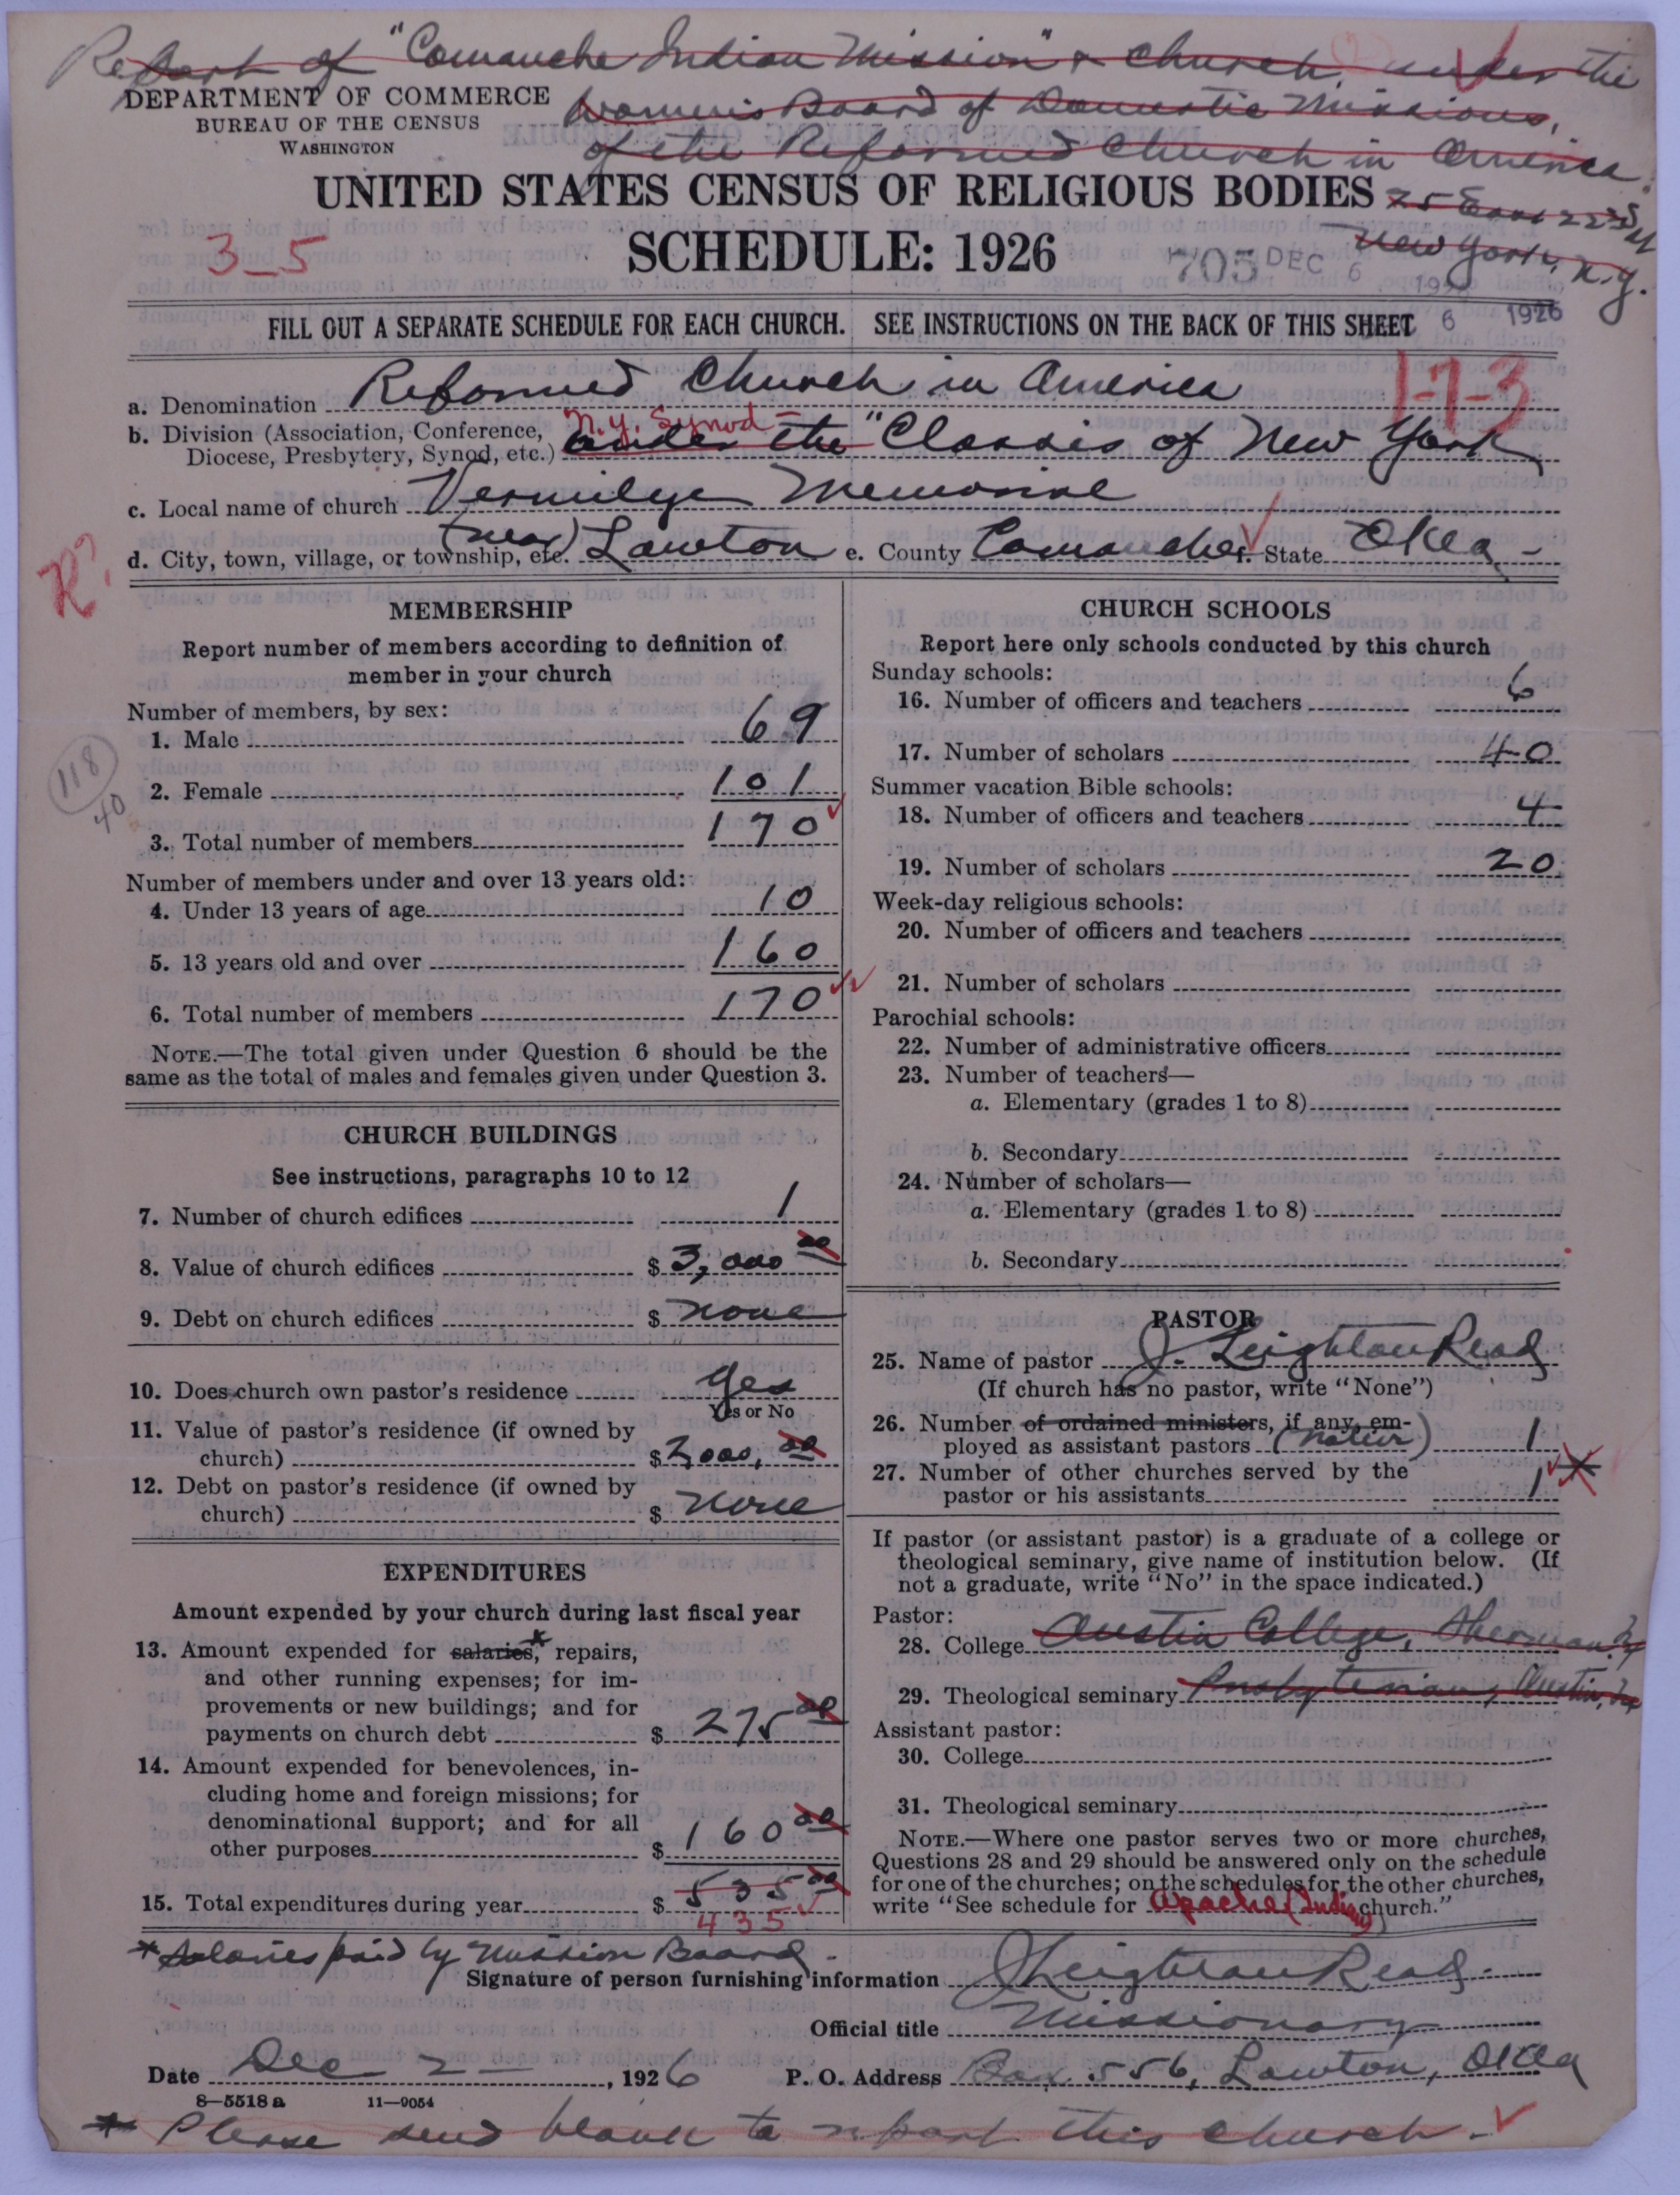 Report of "Comanche Indian Mission" & Church under the
DEPARTMENT OF COMMERCE
BUREAU OF THE CENSUS
WASHINGTON
Women's Board of Domestic Missions,
of the Reformed Church in America.
UNITED STATES CENSUS OF RELIGIOUS BODIES
25 East 22nd St
New York, N.Y.
3-5
SCHEDULE: 1926
705 DEC 6 1926
FILL OUT A SEPARATE SCHEDULE FOR EACH CHURCH. SEE INSTRUCTIONS ON THE BACK OF THIS SHEET
6 1926
1-1-3
a. Denomination Reformed Church in America
N.Y. Synod -
b. Division (Association, Conference, Diocese, Presbytery, Synod, etc.) under the "Classis of New York
c. Local name of church Vermilye Memorial
d. City, town, village, or township, etc. (near) Lawton e. County Comanche f. State Okla -
R?
MEMBERSHIP
Report number of members according to definition of
member in your church
Number of members, by sex:
1. Male 69
118
40
2. Female 101
3. Total number of members 170
Number of members under and over 13 years old:
4. Under 13 years of age 10
5. 13 years old and over 160
6. Total number of members 170
NOTE.—The total given under Question 6 should be the
same as the total of males and females given under Question 3.
CHURCH BUILDINGS
See instructions, paragraphs 10 to 12
7. Number of church edifices 1
8. Value of church edifices $ 3,000 00
9. Debt on church edifices $ none
10. Does church own pastor's residence Yes
Yes or No
11. Value of pastor's residence (if owned by
church) $ 2,000, 00
12. Debt on pastor's residence (if owned by
church) $ none
EXPENDITURES
Amount expended by your church during last fiscal year
13. Amount expended for salaries,* repairs,
and other running expenses; for im-
provements or new buildings; and for
payments on church debt $ 275 00
14. Amount expended for benevolences, in-
cluding home and foreign missions; for
denominational support; and for all
other purposes $ 160 00
15. Total expenditures during year $ 535 00
435
CHURCH SCHOOLS
Report here only schools conducted by this church
Sunday schools:
16. Number of officers and teachers 6
17. Number of scholars 40
Summer vacation Bible schools:
18. Number of officers and teachers 4
19. Number of scholars 20
Week-day religious schools:
20. Number of officers and teachers
21. Number of scholars
Parochial schools:
22. Number of administrative officers
23. Number of teachers—
a. Elementary (grades 1 to 8)
b. Secondary
24. Number of scholars—
a. Elementary (grades 1 to 8)
b. Secondary
PASTOR
25. Name of pastor J. Leighton Read
(If church has no pastor, write "None")
26. Number of ordained ministers, if any, em-
ployed as assistant pastors (native) 1
27. Number of other churches served by the
pastor or his assistants 1
If pastor (or assistant pastor) is a graduate of a college or
theological seminary, give name of institution below. (If
not a graduate, write "No" in the space indicated.)
Pastor:
28. College Austin College, Sherman
29. Theological seminary Presbyterian, Austin, Tex
Assistant pastor:
30. College
31. Theological seminary
NOTE.—Where one pastor serves two or more churches,
Questions 28 and 29 should be answered only on the schedule
for one of the churches; on the schedules for the other churches,
write "See schedule for Apache (Indian) church."
* Salaries paid by Mission Board -
Signature of person furnishing information J Leighton Read -
Official title Missionary
Date Dec 2 - , 1926 P. O. Address Box 556, Lawton, Okla
8-5518 a 11-9054
* Please send blank to report this church -